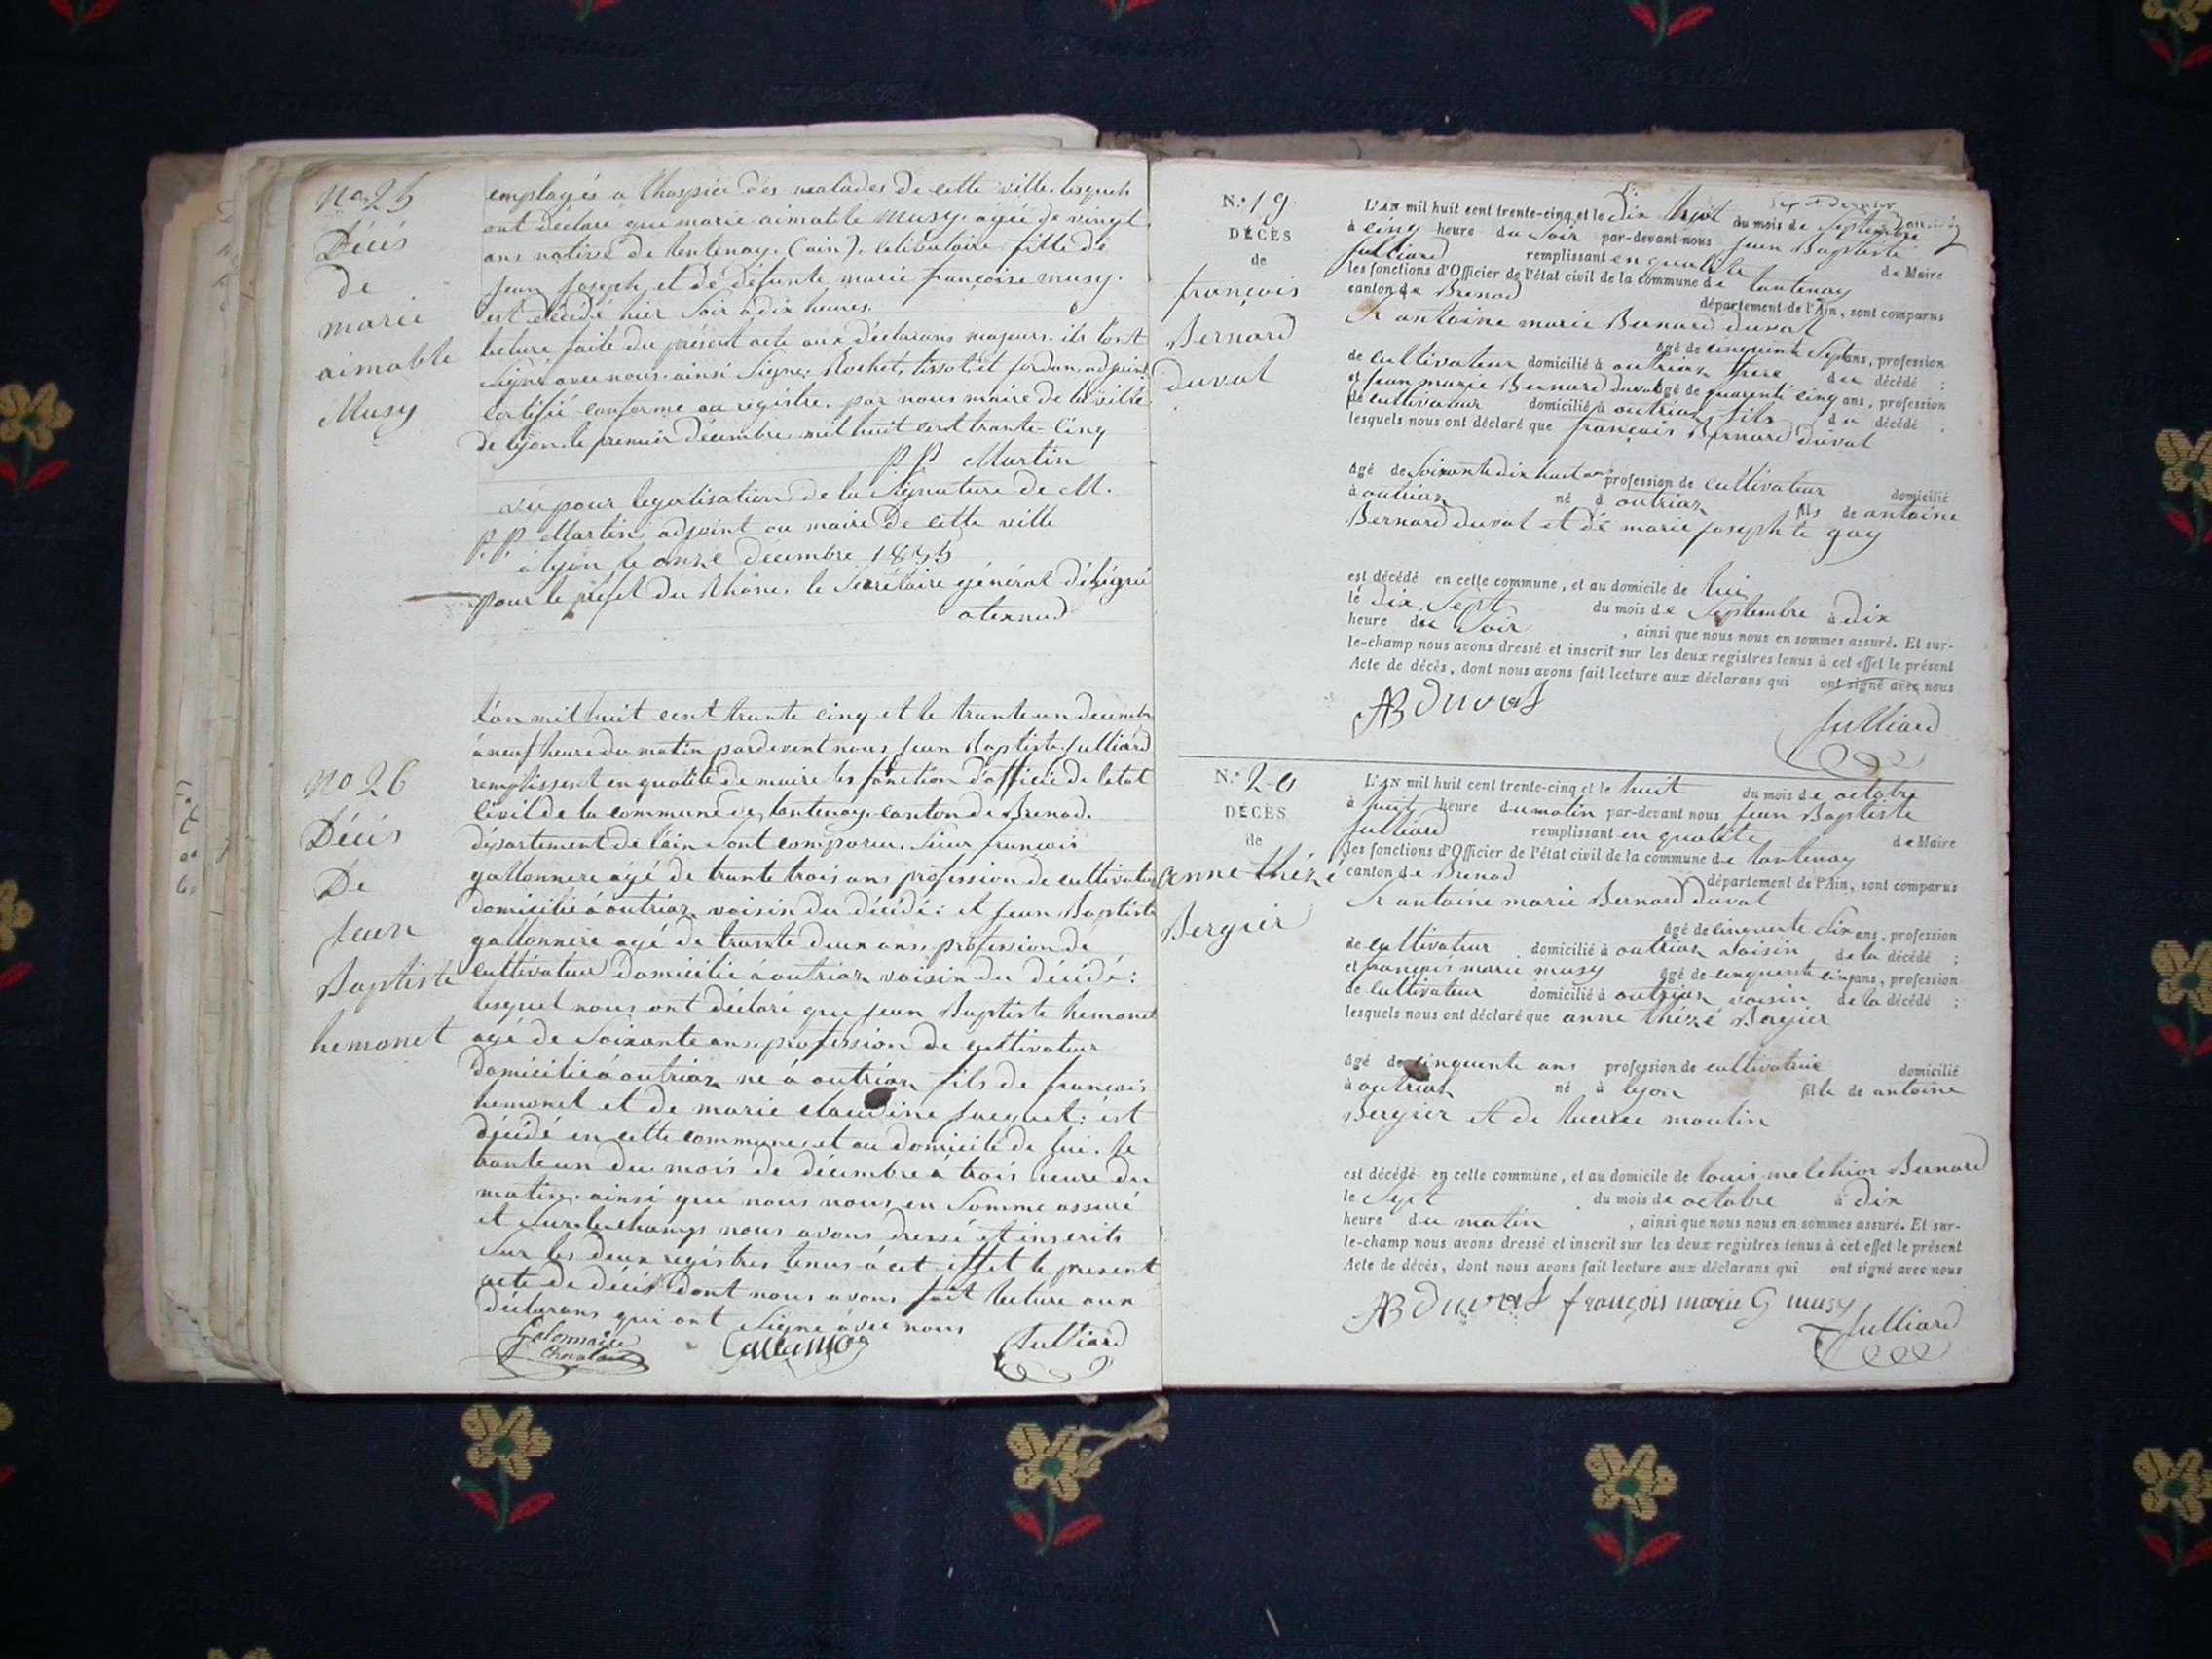 No 25
Décés
de
marie
aimable
Musy
employés a lhospice des malades de cette ville. lesquels
ont déclaré que marie aimable musy. agée de vingt
ans native de lentenay. (ain). celibataire fille de
jean joseph et de défunte marie françoise musy.
est décédé hier soir à dix heures.
lecture faite du présent acte aux déclarans majeurs. ils l'ont
signé avec nous. ainsi signé: Rochet, tissot et jordan. adjoint
Certifié conforme au registre. par nous maire de la ville
de lyon. le premier décembre mil huit cent trante-cinq
P. P. Martin
vu pour legalisation de la signature de M.
P. P. Martin adjoint au maire de cette ville
à lyon le onze décembre 1835
pour le préfet du Rhône. le secrétaire général délégué
No 26
Décés
De
jean
Baptiste
hemonet
l'an mil huit cent trante cinq et le trante un decembre
à neuf heure du matin pardevent nous jean Baptiste julliard
remplissent en qualité de maire les fonction d'officié de letat
Civil de la commune de lantenay. canton de Brenod.
département de l'ain sont comparu. sieur françois
gallonnere agé de trante trois ans profession de cultivateur
domicilié à outriaz voisin du décédé: et jean Baptiste
gallonnere agé de trante deux ans. profession de
cultivateur Domicilié à outriaz voisin du décédé:
lesquel nous ont déclaré que jean Baptiste hemonet
agé de soixante ans. profession de cultivateur
domicilié à outriaz né à outriaz fils de françois
hemonet et de marie claudine jacquet: ést
décédé en cette commune. et au domicile de lui. le
trante un du mois de décembre à trois heure du
matin. ainsi que nous nous en somme assuré
et sur le champs nous avons dressé et inscrits
sur les deux registres tenus à cet effet le present
acte de décés dont nous avons fait lecture aux
déclarans qui ont signé avec nous
Julliard
N.º 19
DÉCÈS
de
françois
Bernard
duval
L'AN mil huit cent trente-cinq et le dix huit du mois de septembre
à cinq heure du soir par-devant nous jean Baptiste
julliard remplissant en qualité de Maire
les fonctions d'Officier de l'état civil de la commune de lantenay
canton de Brenod département de l'Ain, sont comparus
Sr antoine marie Bernard duval
agé de cinquente sept ans, profession
de cultivateur domicilié à outriaz frere du décédé ;
et jean marie Bernard duval agé de quarente cinq ans, profession
de cultivateur domicilié à outriaz fils du décédé ;
lesquels nous ont déclaré que françois Bernard duval
agé de soixante dix huit ans profession de cultivateur domicilié
à outriaz né à outriaz fils de antoine
Bernard duval et de marie josephte gay
est décédé en cette commune, et au domicile de lui
le dix sept du mois de septembre à dix
heure du soir , ainsi que nous nous en sommes assuré. Et sur-
le-champ nous avons dressé et inscrit sur les deux registres tenus à cet effet le présent
Acte de décès, dont nous avons fait lecture aux déclarans qui ont signé avec nous
AB duval
Julliard
N.º 20
DÉCÈS
de
anne thézé
Bergier
L'AN mil huit cent trente-cinq et le huit du mois de octobre
à huit heure du matin par-devant nous jean Baptiste
julliard remplissant en qualité de Maire
les fonctions d'Officier de l'état civil de la commune de lantenay
canton de Brenod département de l'Ain, sont comparus
Sr antoine marie Bernard duval
agé de cinquente six ans, profession
de cultivateur domicilié à outriaz voisin de la décédé ;
et françois marie musy agé de cinquente cinq ans, profession
de cultivateur domicilié à outriaz voisin de la décédé ;
lesquels nous ont déclaré que anne thézé Bergier
agé de cinquente ans profession de cultivatrice domicilié
à outriaz né à lyon fille de antoine
Bergier et de lucrece moulin
est décédé en cette commune, et au domicile de louis melchior Bernard
le sept du mois de octobre à dix
heure du matin , ainsi que nous nous en sommes assuré. Et sur-
le-champ nous avons dressé et inscrit sur les deux registres tenus à cet effet le présent
Acte de décès, dont nous avons fait lecture aux déclarans qui ont signé avec nous
AB duval françois marie G musy
Julliard